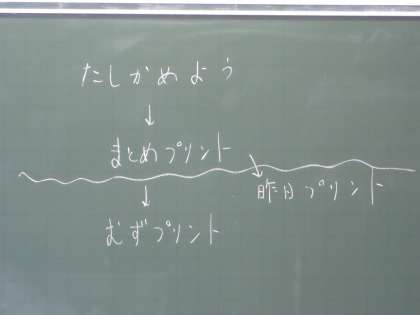 たしかめよう
↓
まとめプリント
↘
昨日プリント
↓
むずプリント